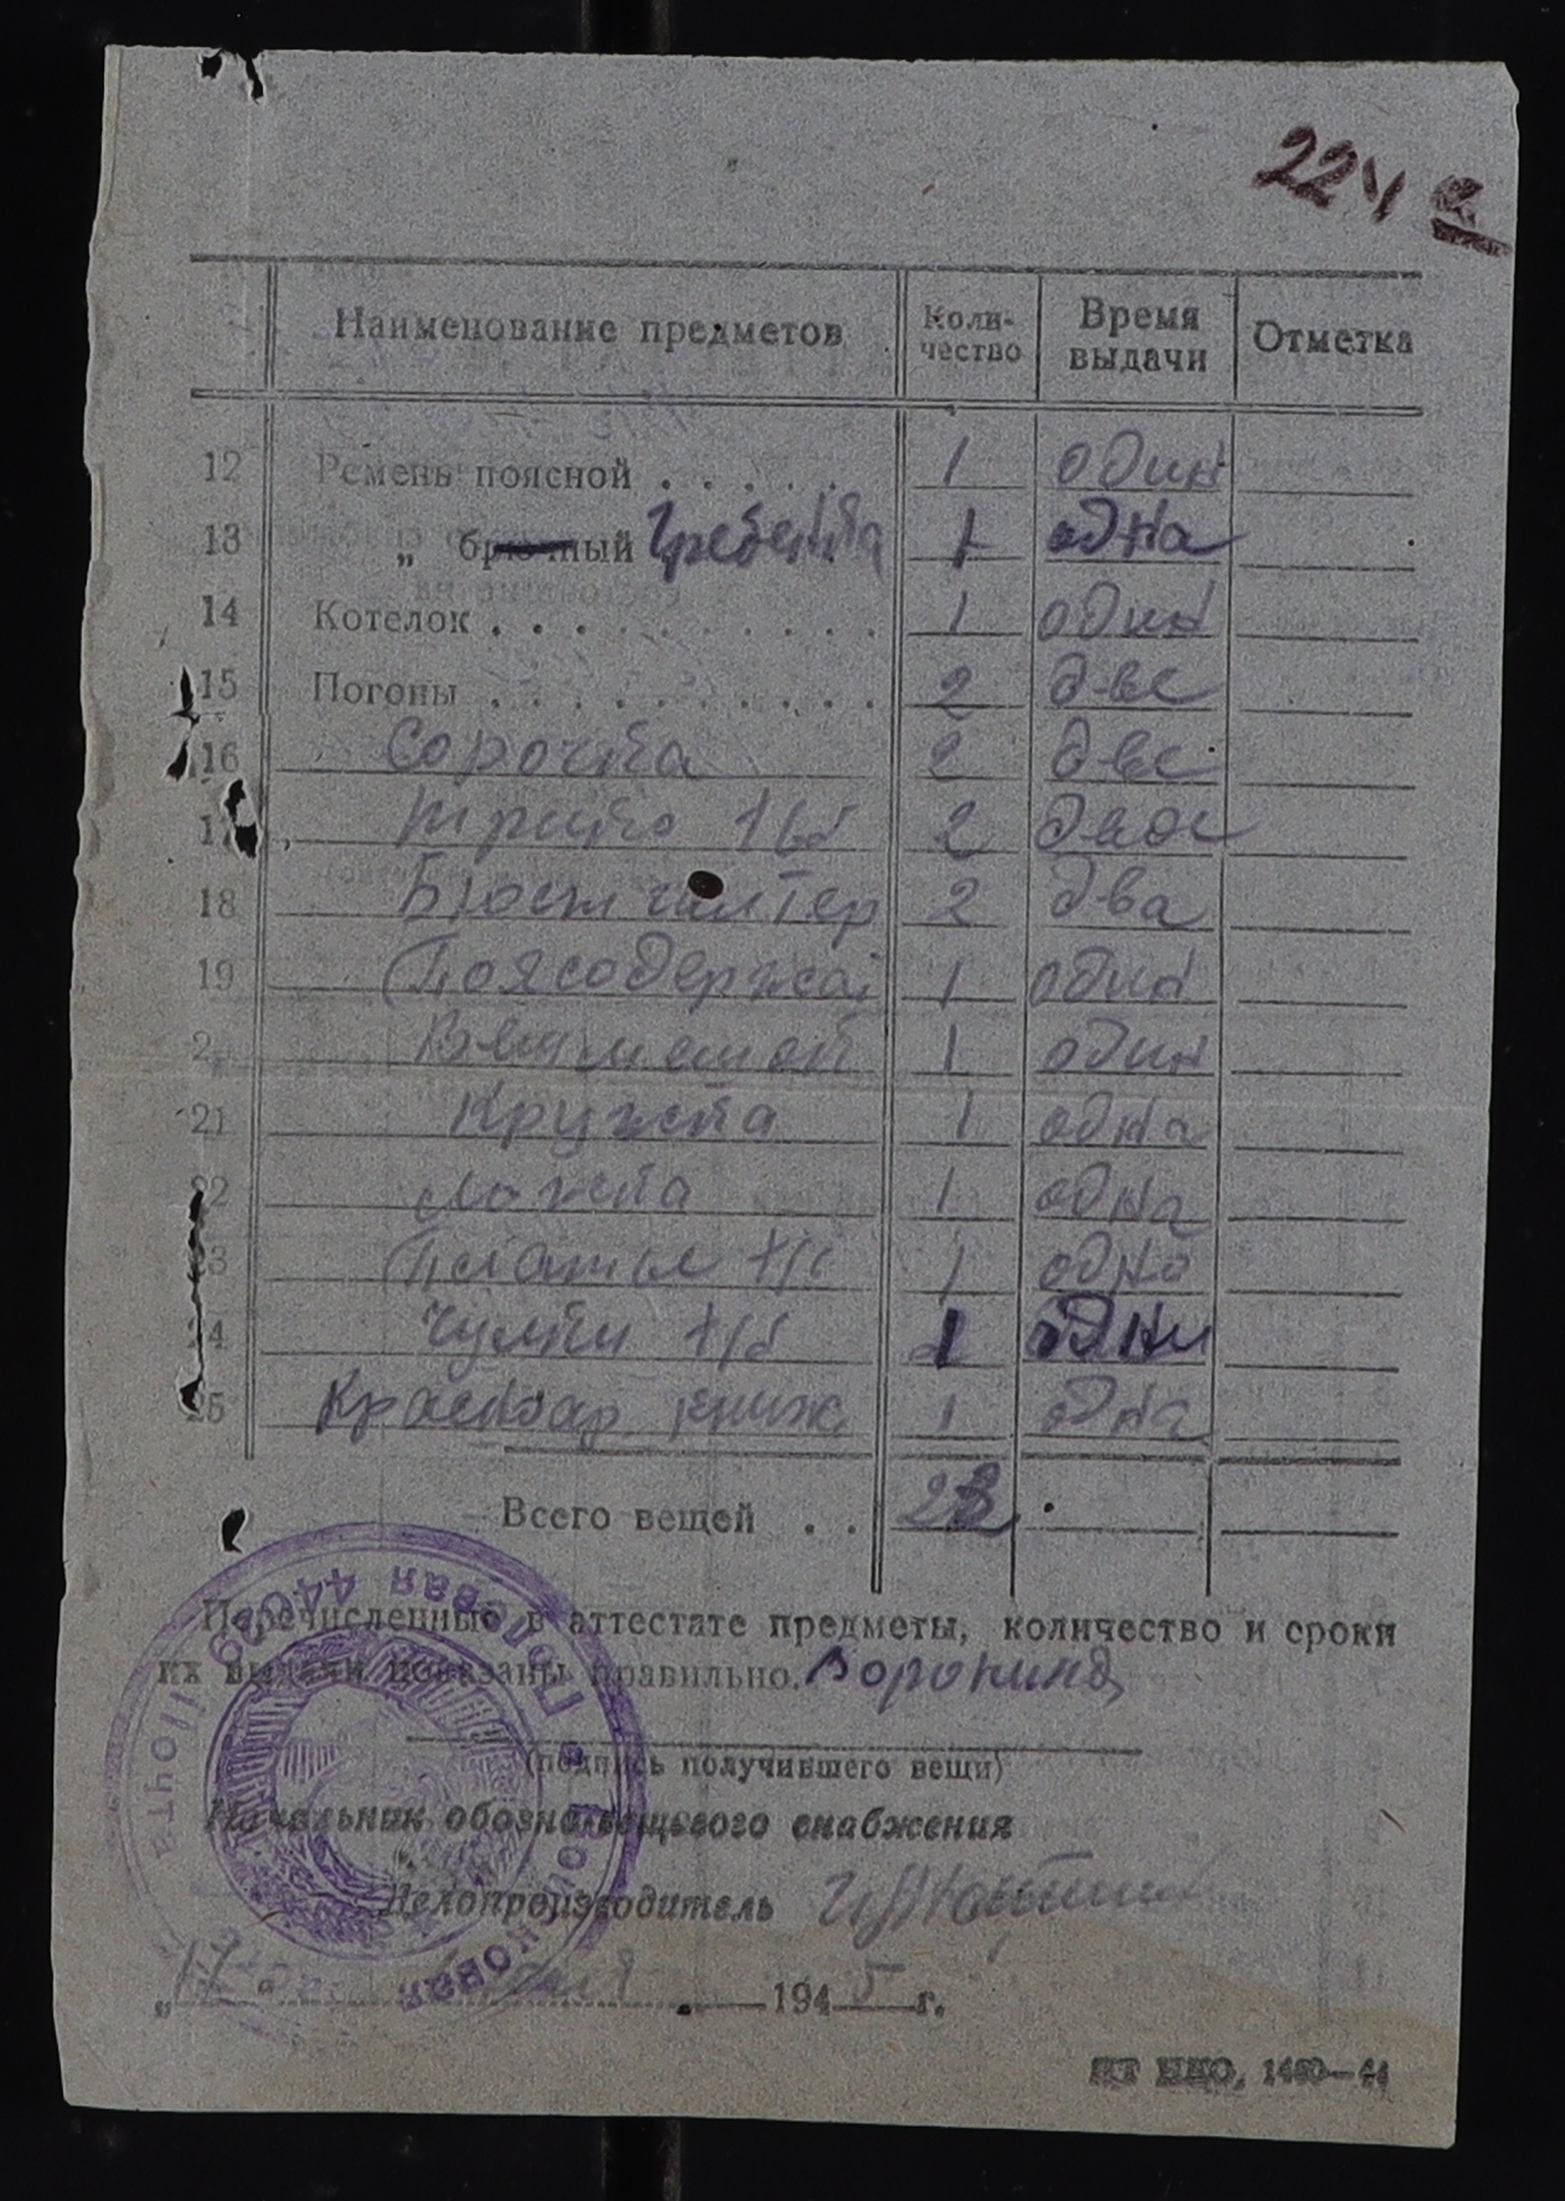 224
Наименование предметов Количество Время выдачи Отметка
12 Ремень поясной . . . . . 1 один
13 „ брючный Гребенка 1 одна
14 Котелок . . . . . . . . . . 1 один
15 Погоны . . . . . . . . . . 2 две
16 Сорочка 2 две
17 Трико 2 двое
18 Бюстгалтер 2 два
19 Поясодержат 1 один
2 Вещмешок 1 один
21 Кружка 1 одна
22 Ложка 1 одна
23 Платье 1 одно
24 Чулки 1 одни
25 Красноар книж 1 одна
Всего вещей . . 23
Перечисленные в аттестате предметы, количество и сроки
их выдачи показаны правильно. Воронина
(подпись получившего вещи)
Начальник обозно-вещевого снабжения
Делопроизводитель
„17" 1945 г.
Войсковая Почта • Полевая 44099